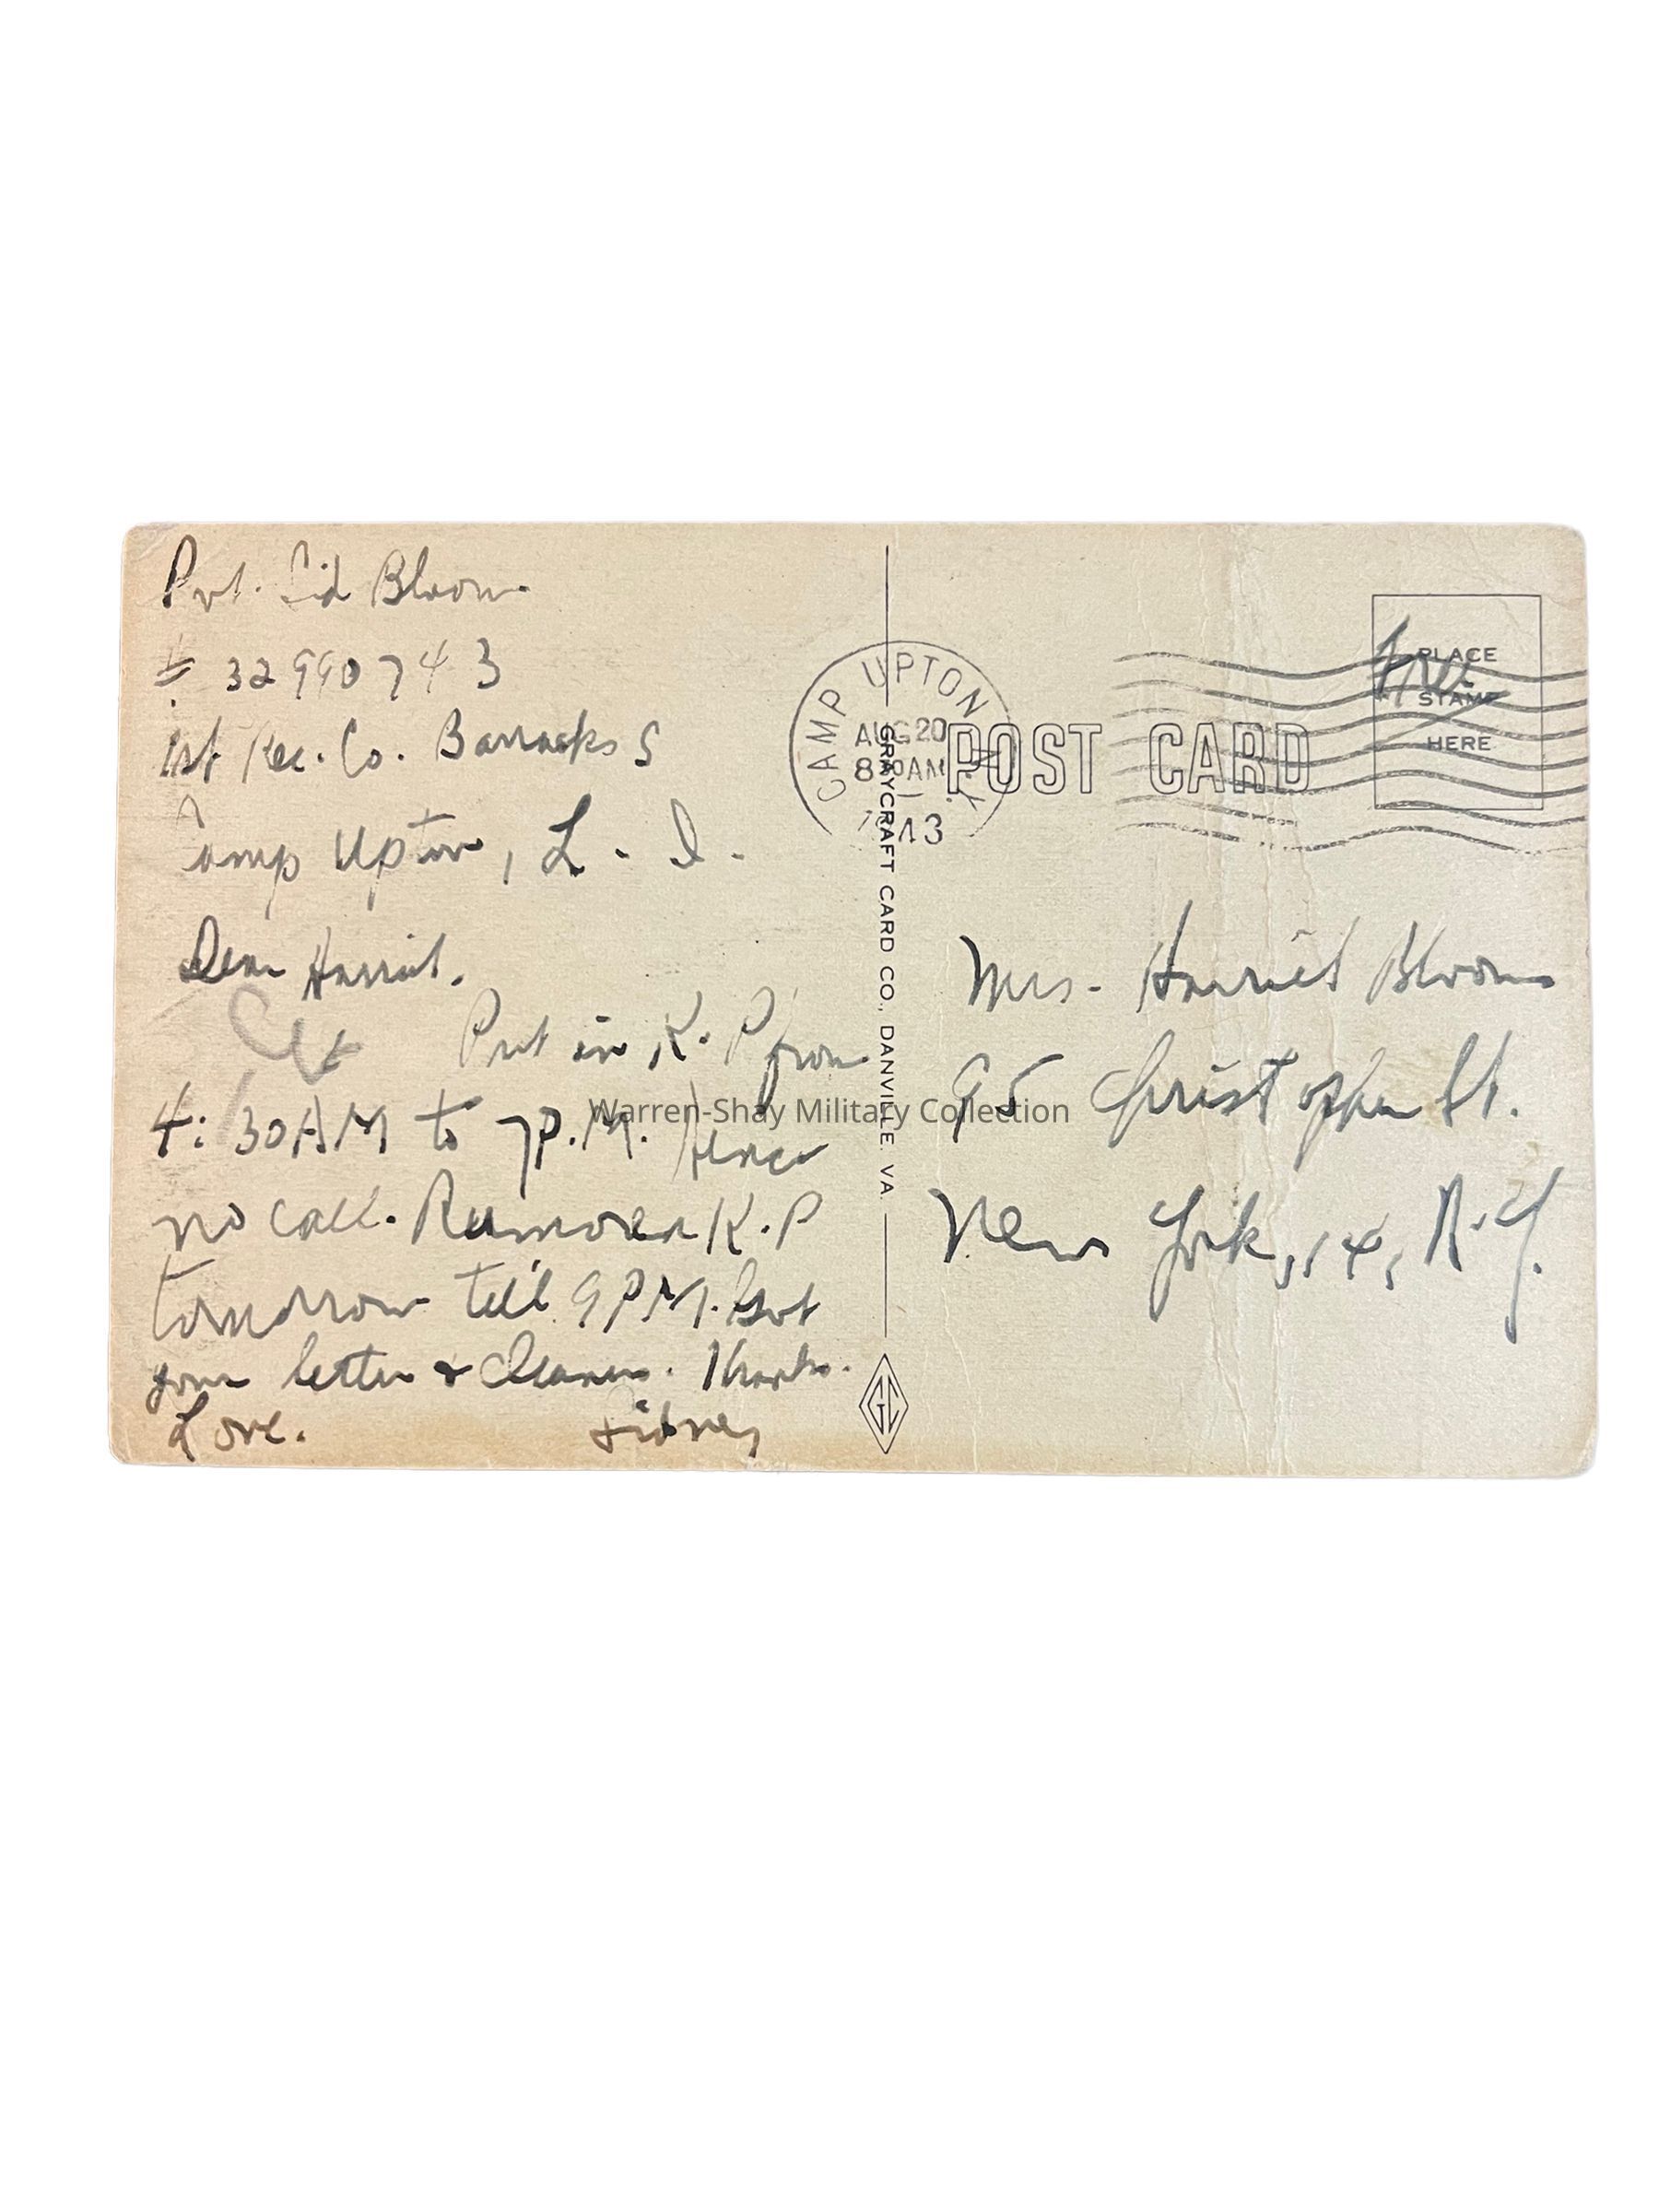 Pvt. Sid Bloom
# 32990743
1st Rec. Co. Barracks 5
Camp Upton, L. I.
Dear Harriet.
Put in K. P from
4:30 AM to 7 P.M. Hence
no call. Rumored K. P
tomorrow till 9 P.M. Got
your letter & cleaners. Thanks.
Love. Sidney
GRAYCRAFT CARD CO., DANVILLE. VA.
GC
CAMP UPTON N.Y.
AUG 20
8 30 AM
1943
POST CARD
PLACE
STAMP
HERE
Free
Mrs. Harriet Bloom
95 Christopher St.
New York, 14, N.Y.
Warren-Shay Military Collection